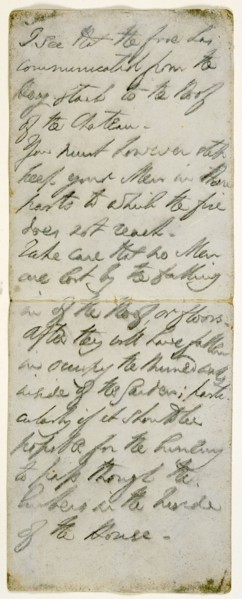 I see that the fire has
communicated from the
Hay Stack to the Roof
of the Chateau.
You must however still
keep your Men in those
parts to which the fire
does not reach.
Take care that no Men
are lost by the falling
in of the Roof or floors.
After they will have fallen
in occupy the Ruined walls
inside of the Garden; parti
cularly if it should be
possible for the Enemy
to pass through the
Embers in the Inside
of the House.